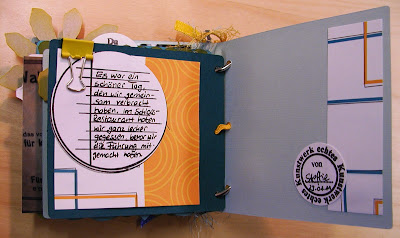 Da
Wa
Es war ein
schöner Tag,
den wir gemein-
sam verbracht
haben. Im Schloß-
Restaurant haben
wir ganz lecker
gegessen, bevor wir
die Führung mit-
gemacht haben.
echtes Kunstwerk echtes Kunstwerk
von